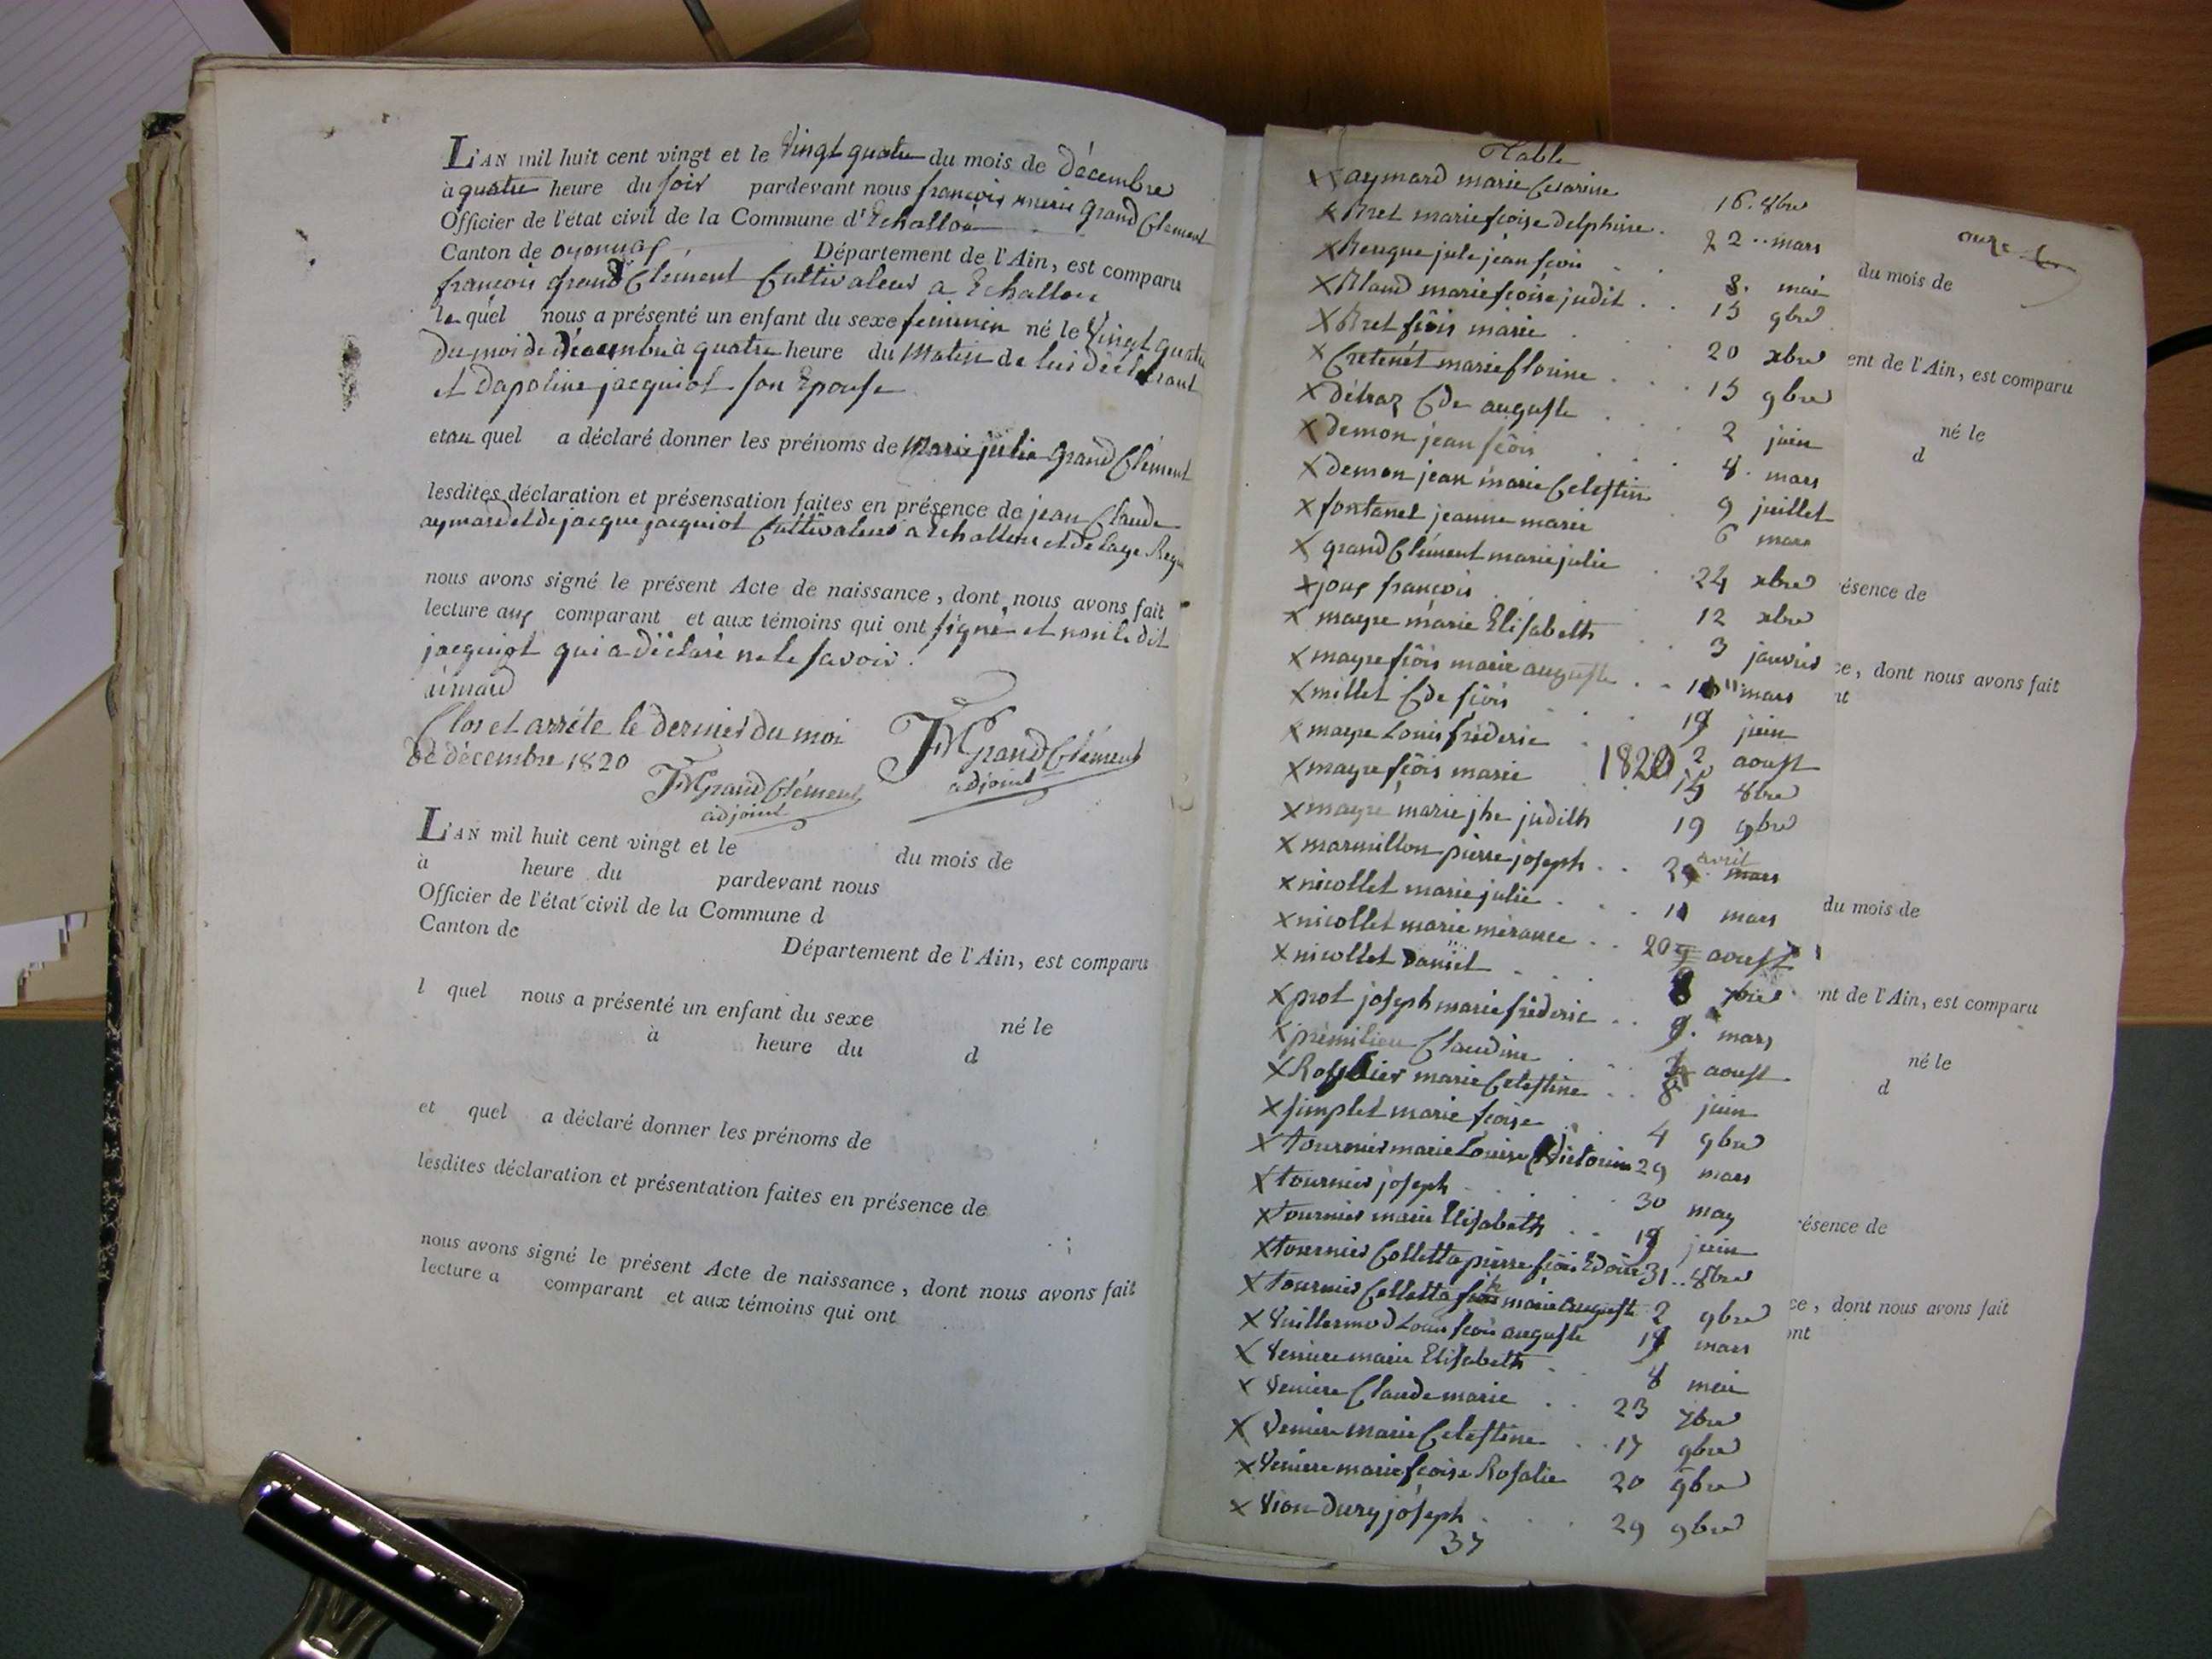 L'AN mil huit cent vingt et le Vingt quatre du mois de décembre
à quatre heure du soir pardevant nous françois marie grand Clement
Officier de l'état civil de la Commune d'Echallon
Canton de oyonnas Département de l'Ain, est comparu
françois grand Clément Cultivateur a Echallon
le quel nous a présenté un enfant du sexe feminin né le Vingt quatre
du moi de décembre à quatre heure du Matin de lui déclarant
et dapoline jacquiot son Epouse
et au quel a déclaré donner les prénoms de Marie julie grand Clément
lesdites déclaration et présensation faites en présence de jean Claude
aymard et de jacque jacquiot Cultivateurs a Echallon et de lage Requ
nous avons signé le présent Acte de naissance, dont nous avons fait
lecture aux comparant et aux témoins qui ont signé et non le dit
jacquiot qui a déclaré ne le savoir.
aimard
Clos et arrété le dernier du moi
de décembre 1820
JMGrandClément
adjoint
JMGrandClément
adjoint
L'AN mil huit cent vingt et le du mois de
à heure du pardevant nous
Officier de l'état civil de la Commune d
Canton de Département de l'Ain, est comparu
l quel nous a présenté un enfant du sexe né le
à heure du d
et quel a déclaré donner les prénoms de
lesdites déclaration et présentation faites en présence de
nous avons signé le présent Acte de naissance, dont nous avons fait
lecture a comparant et aux témoins qui ont
Table
X aymard marie Cesarine 16. 8bre
X Bret marie fcoise delphine. 22.. mars
X Beugue jule jean fcois 8. mai
X Bland marie fcoise judit.. 15 9bre
X Bret fcois marie 20 xbre
X Cretenet marie florine 15 9bre
X détraz Cde auguste 2 juin
X demon jean fcois 8. mars
X demon jean marie Celestin 9 juillet
X fontanel jeanne marie 6 mars
X grand Clément marie julie 24 xbre
X joux françois 12 xbre
X mayre marie Elisabeth 3 janvier
X mayre fcois marie auguste.. mars
X millet Cde fcois juin
X mayre Louis fréderic 2 aoust
X mayre fcois marie 1820 8bre
X mayre marie jhe judith 19 9bre
X marmillon pierre joseph.. avril mars
X nicollet marie julie mars
X nicollet marie mérance.. 20 aoust
X nicollet Daniel
X prot joseph marie fréderic.. 9. mars
X premilieu Claudine aoust
X marie Celestine.. 8 juin
X simplet marie fcoise 4 9bre
X tournier marie Louise Victorine 29 mars
X tournier joseph 30 may
X tournier marie Elisabeth.. juin
X tournier Colletta pierre fcois Edouar 31.. 8bre
X tournier Colletta marie auguste 2 9bre
X Vuillermod Louis fcois auguste mars
X Veniere marie Elisabeth 8 mai
X Veniere Claude marie.. 23 7bre
X Veniere marie Celestine 17 9bre
X Veniere marie fcoise Rosalie 20 9bre
X Vion dury joseph 29 9bre
37
du mois de
ent de l'Ain, est comparu
né le
d
ésence de
ce, dont nous avons fait
nt
du mois de
nt de l'Ain, est comparu
né le
d
ésence de
ce, dont nous avons fait
ont